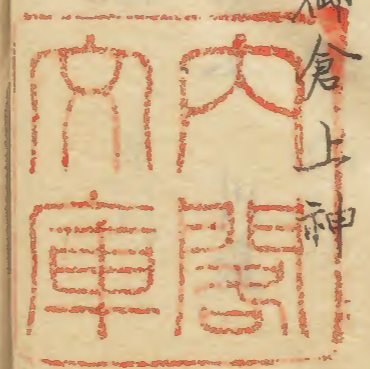 御倉上神
内閣
文庫